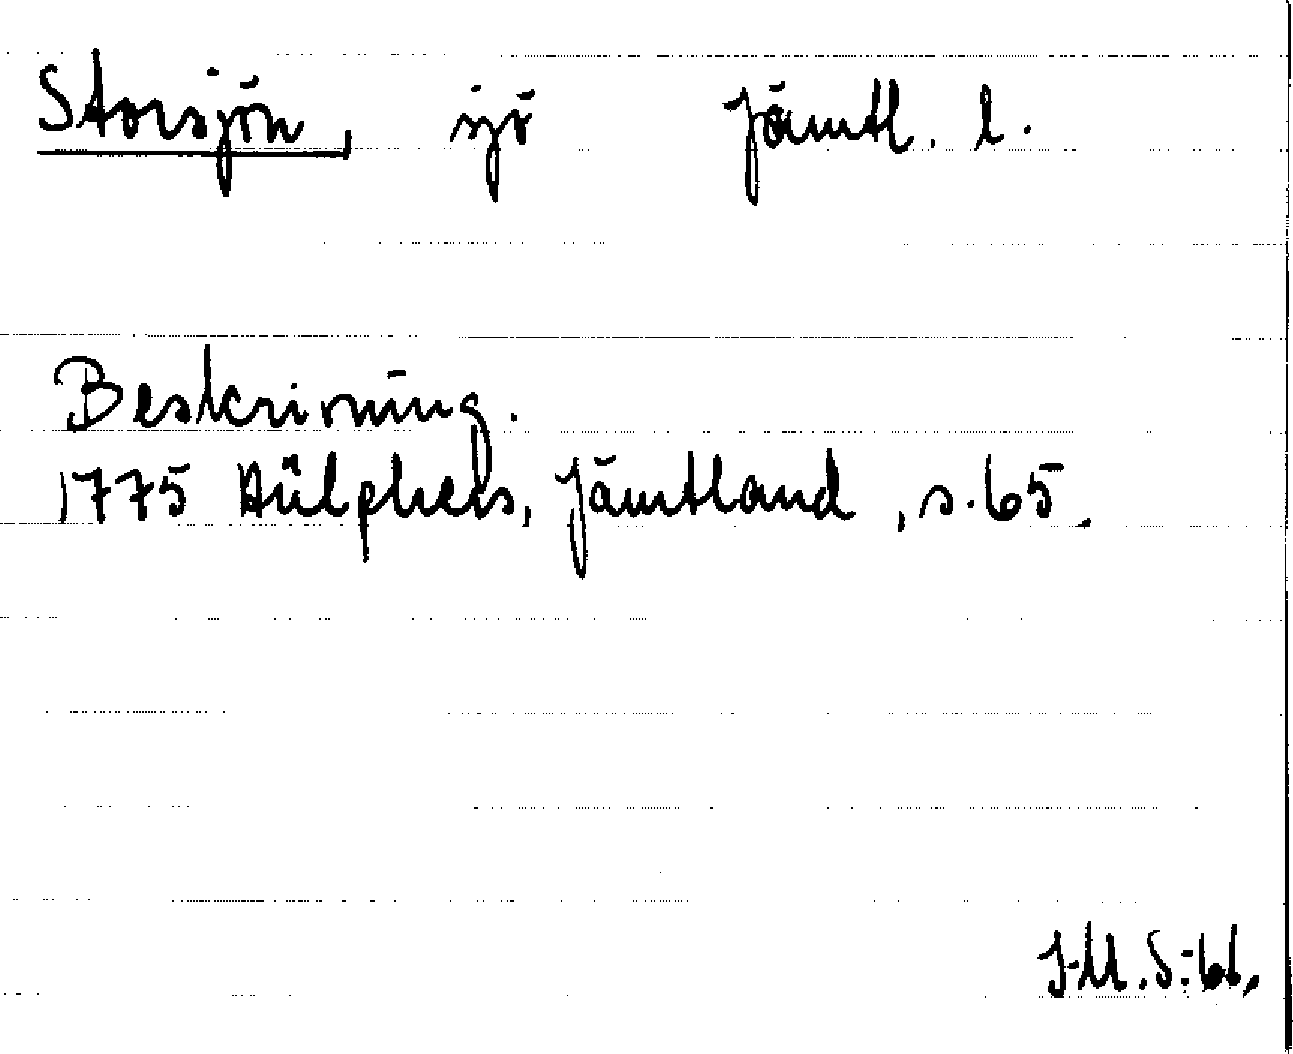 Storsjön, sjö Jämtl. l.
Beskrivning.
1775 Hülphers, Jämtland, s. 65.
J-M. S:66.